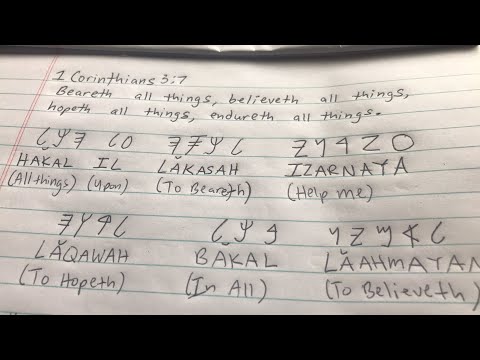 1 Corinthians 3:7
Beareth all things, believeth all things,
hopeth all things, endureth all things.
𐤄𐤊𐤋 𐤏𐤋 𐤋𐤊𐤎𐤄 𐤏𐤆𐤓𐤍𐤉
HAKAL IL LĂKASAH IZARNAYA
(All things) (Upon) (To Beareth) (Help me)
𐤋𐤒𐤅𐤄 𐤁𐤊𐤋 𐤋𐤀𐤌𐤉𐤍
LĂQAWAH BAKAL LĂAHMAYAN
(To Hopeth) (In All) (To Believeth)